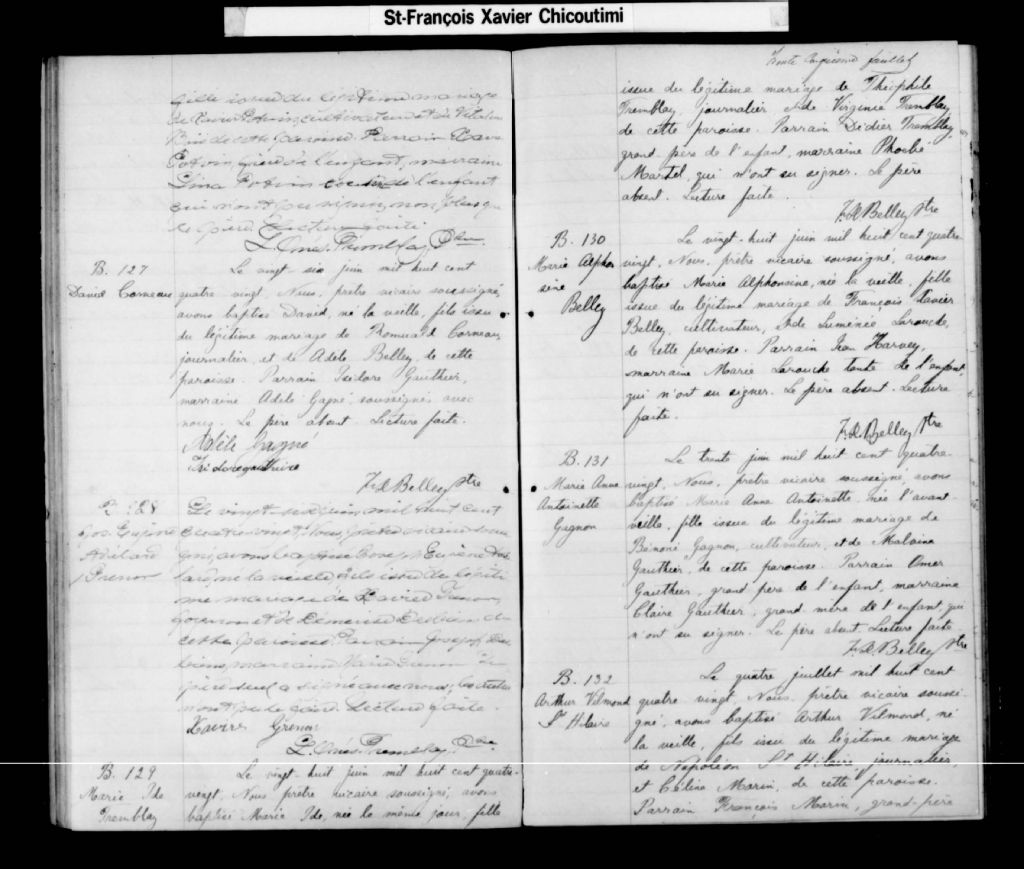 St-François Xavier Chicoutimi
fille issue du légitime mariage
de Xavier Potvin, cultivateur et de
de cette paroisse. Parrain Xavier
Potvin, marraine
Potvin de l'enfant
qui n'ont pu signer, non plus que
le père. Lecture faite.
L. Tremblay, Ptre
B. 127
David Corneau
Le vingt six juin mil huit cent
quatre vingt, Nous, prêtre vicaire soussigné,
avons baptisé David, né la veille, fils issu
du légitime mariage de Romuald Corneau,
journalier, et de Adele Belley, de cette
paroisse. Parrain Isidore Gauthier,
marraine Adele Gagné, soussignés avec
nous. Le père absent. Lecture faite.
Adèle Gagné
F. X. Belley Ptre
Adélard
Grenon
Le vingt juin, mil huit cent
quatre vingt, Nous, prêtre vicaire sous
signé, avons baptisé Joseph Eugène
né la veille, fils issu du légiti
me mariage de Xavier Grenon,
et de
cette paroisse. Parrain Joseph
marraine Marie Grenon. Le
père seul a signé avec nous,
Lecture faite.
Xavier Grenon
Tremblay, Ptre
B. 129
Marie Ide
Tremblay
Le vingt-huit juin mil huit cent quatre-
vingt, Nous prêtre vicaire soussigné, avons
baptisé Marie Ide, née le même jour, fille
Trente feuillet
issue du légitime mariage de Théophile
Tremblay, journalier et de Virginie Tremblay
de cette paroisse. Parrain Didier Tremblay,
grand-père de l'enfant, marraine Phoebé
Martel, qui n'ont su signer. Le père
absent. Lecture faite.
F. X. Belley Ptre
B. 130
Marie Alphon
sine
Belley
Le vingt-huit juin mil huit cent quatre
vingt, Nous, prêtre vicaire soussigné, avons
baptisé Marie Alphonsine, née la veille, fille
issue du légitime mariage de François Xavier
Belley, cultivateur, et de Luménie Larouche,
de cette paroisse. Parrain Jean Harvey,
marraine Marie Larouche tante de l'enfant,
qui n'ont su signer. Le père absent. Lecture
faite.
F. X. Belley Ptre
B. 131
Marie Anne
Antoinette
Gagnon
Le trente juin mil huit cent quatre-
vingt, Nous, prêtre vicaire soussigné, avons
baptisé Marie Anne Antoinette, née l'avant-
veille, fille issue du légitime mariage de
Bénoni Gagnon, cultivateur, et de Malvina
Gauthier, de cette paroisse. Parrain Omer
Gauthier, grand père de l'enfant, marraine
Claire Gauthier, grand mère de l'enfant, qui
n'ont su signer. Le père absent. Lecture faite.
F. X. Belley Ptre
B. 132
Arthur Vilmond
St Hilaire
Le quatre juillet mil huit cent
quatre vingt, Nous, prêtre vicaire soussi-
gné, avons baptisé Arthur Vilmond, né
la veille, fils issu du légitime mariage
de Napoléon St Hilaire, journalier,
et Cédine Marin, de cette paroisse.
Parrain François Marin, grand-père